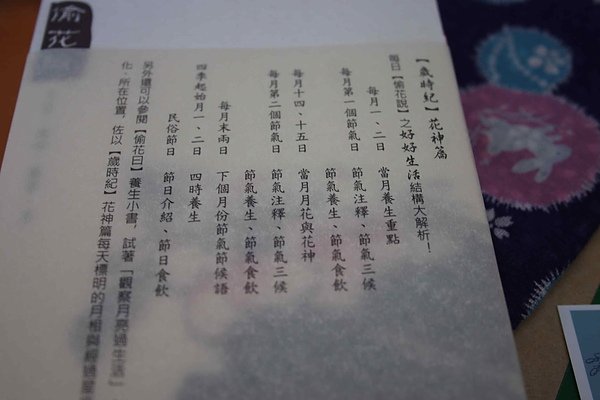 偷花
【歲時紀】花神篇
每日【偷花說】之好好生活結構大解析！
每月一、二日 當月養生重點
每月第一個節氣日 節氣注釋、節氣三候
節氣養生、節氣食飲
每月十四、十五日 當月月花與花神
每月第二個節氣日 節氣注釋、節氣三候
節氣養生、節氣食飲
每月末兩日 下個月份節氣節候語
四季起始月一、二日 四時養生
民俗節日 節日介紹、節日食飲
另外還可以參閱【偷花曰】養生小書，試著「觀察月亮過生活」
化、所在位置，佐以【歲時紀】花神篇每天標明的月相與經過星